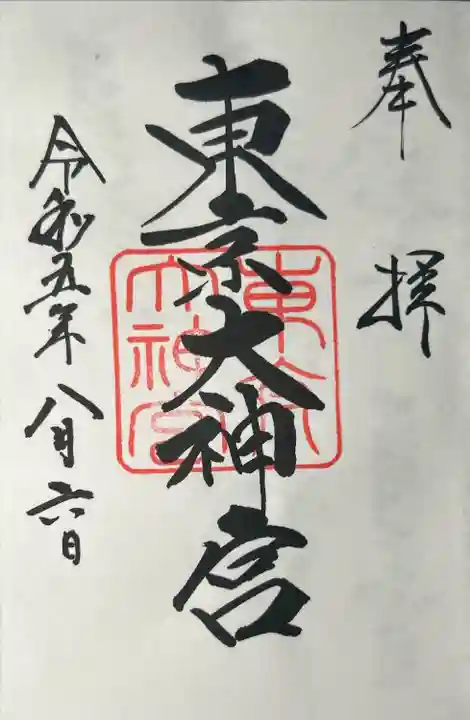 奉拝
東京大神宮
東京大神宮
令和五年八月六日